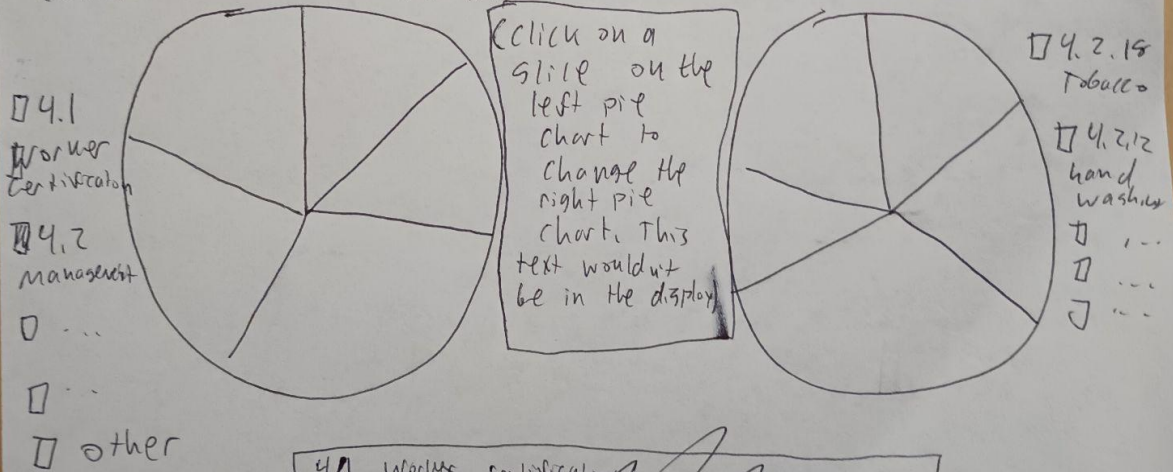 4.1
Worker
Certification
4.2
Management
...
...
other
(Click on a
slice on the
left pie
chart to
change the
right pie
chart. This
text wouldn't
be in the display)
4.2.18
Tobacco
4.2.12
hand
washing
...
...
...
worker